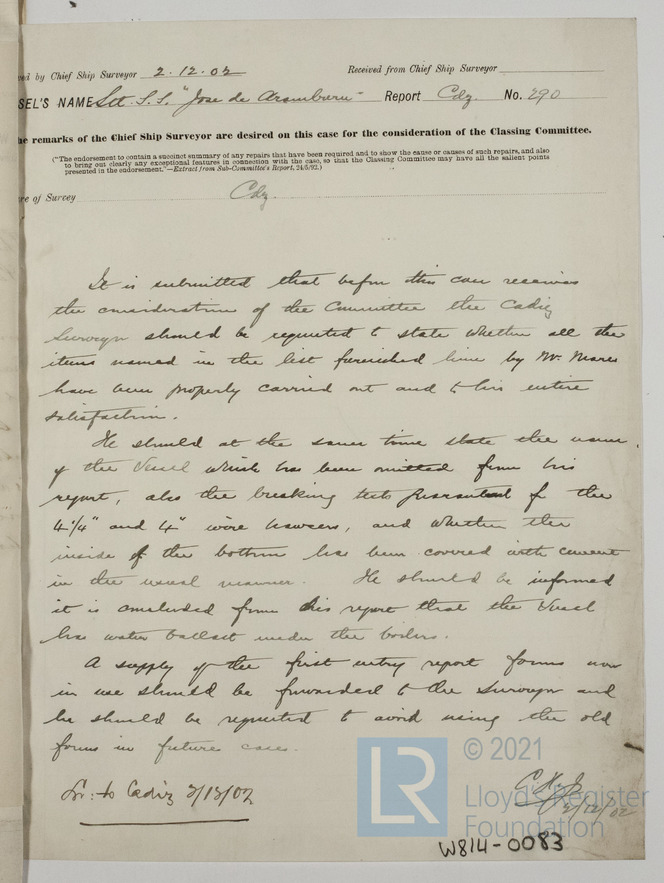 ved by Chief Ship Surveyor 2.12.02 Received from Chief Ship Surveyor
SEL'S NAME Sct. S.S. "Jose de Aramburu" Report Cdz. No. 290
he remarks of the Chief Ship Surveyor are desired on this case for the consideration of the Classing Committee.
("The endorsement to contain a succinct summary of any repairs that have been required and to show the cause or causes of such repairs, and also
to bring out clearly any exceptional features in connection with the case, so that the Classing Committee may have all the salient points
presented in the endorsement."—Extract from Sub-Committee's Report, 24/5/92.)
re of Survey Cdz.
It is submitted that before this case receives
the consideration of the Committee the Cadiz
Surveyor should be requested to state whether all the
items named in the list furnished him by Mr. Mares
have been properly carried out and to his entire
satisfaction.
He should at the same time state the name
of the Vessel which has been omitted from his
report, also the breaking tests guaranteed of the
4 1/4" and 4" wire hawsers, and whether the
inside of the bottom has been covered with cement
in the usual manner. He should be informed
it is concluded from his report that the Vessel
has water ballast under the boilers.
A supply of the first entry report forms now
in use should be forwarded to the Surveyor and
he should be requested to avoid using the old
forms in future cases.
Lr: to Cadiz 2/12/02
2/12/02
LR © 2021
Lloyd's Register
Foundation
W814-0083